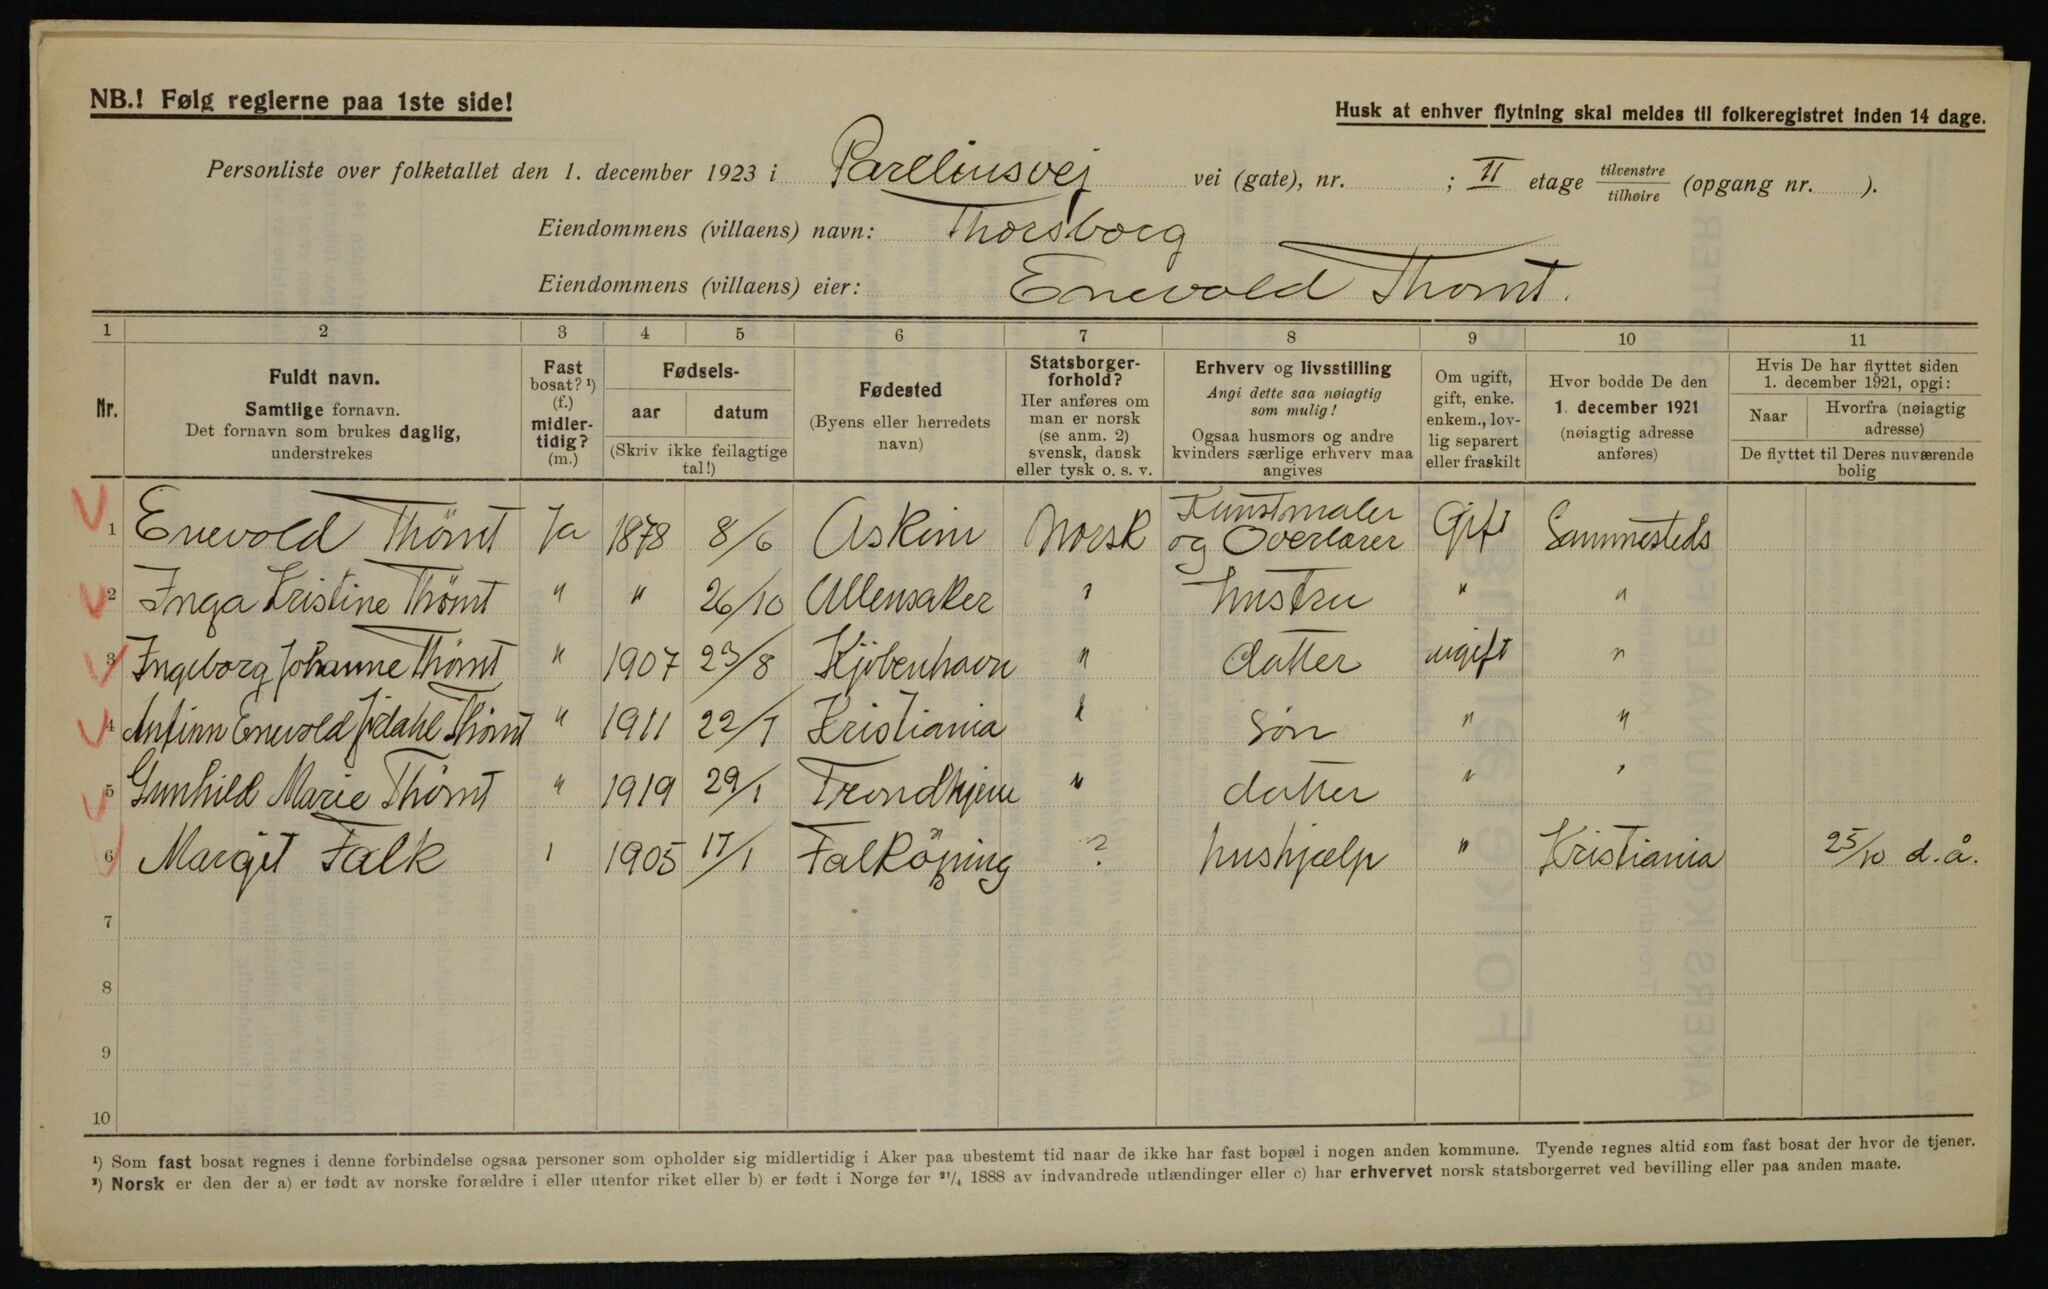 NB.! Følg reglerne paa 1ste side!
Husk at enhver flytning skal meldes til folkeregistret inden 14 dage.
Personliste over folketallet den 1. december 1923 i Parelinsvej vei (gate), nr. ; II etage tilvenstre/tilhøire (opgang nr. ).
Eiendommens (villaens) navn: Thorsborg
Eiendommens (villaens) eier: Enevold Thømt.
1 2 3 4 5 6 7 8 9 10 11
Nr.
Fuldt navn.
Samtlige fornavn.
Det fornavn som brukes daglig,
understrekes
Fast
bosat? ¹)
(f.)
midler-
tidig?
(m.)
Fødsels-
aar datum
(Skriv ikke feilagtige
tal!)
Fødested
(Byens eller herredets
navn)
Statsborger-
forhold?
Her anføres om
man er norsk
(se anm. 2)
svensk, dansk
eller tysk o. s. v.
Erhverv og livsstilling
Angi dette saa nøiagtig
som mulig!
Ogsaa husmors og andre
kvinders særlige erhverv maa
angives
Om ugift,
gift, enke.
enkem., lov-
lig separert
eller fraskilt
Hvor bodde De den
1. december 1921
(nøiagtig adresse
anføres)
Hvis De har flyttet siden
1. december 1921, opgi:
Naar
Hvorfra (nøiagtig
adresse)
De flyttet til Deres nuværende
bolig
1 Enevold Thømt Ja 1878 8/6 Askim Norsk Kunstmaler og Overlærer Gift Sammesteds
2 Inga Kristine Thømt " " 26/10 Ullensaker " hustru " "
3 Ingeborg Johanne Thømt " 1907 23/8 Kjøbenhavn " datter ugift "
4 Anfinn Enevold Jødahl Thømt " 1911 22/1 Kristiania " søn " "
5 Gunhild Marie Thømt " 1919 29/1 Trondhjem " datter " "
6 Margit Falk " 1905 17/1 Falköping ? hushjælp " Kristiania 25/10 d.å.
7
8
9
10
¹) Som fast bosat regnes i denne forbindelse ogsaa personer som opholder sig midlertidig i Aker paa ubestemt tid naar de ikke har fast bopæl i nogen anden kommune. Tyende regnes altid som fast bosat der hvor de tjener.
²) Norsk er den der a) er født av norske forældre i eller utenfor riket eller b) er født i Norge før 21/4 1888 av indvandrede utlændinger eller c) har erhvervet norsk statsborgerret ved bevilling eller paa anden maate.